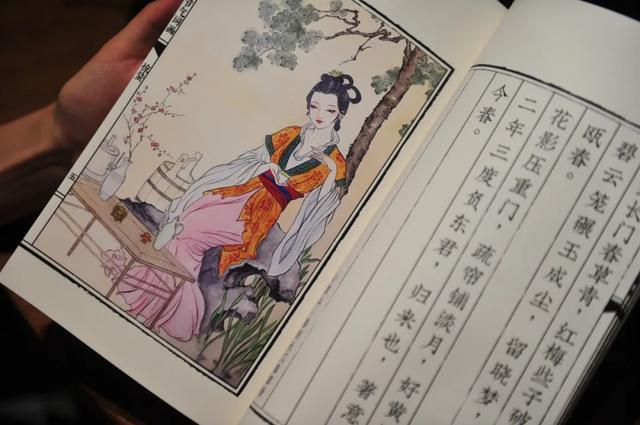 长门春草青，红梅些子破
碧云笼碾玉成尘，留晓梦，
瓯春。
花影压重门，疏帘铺淡月，好黄
二年三度负东君，归来也，著意
今春。
五